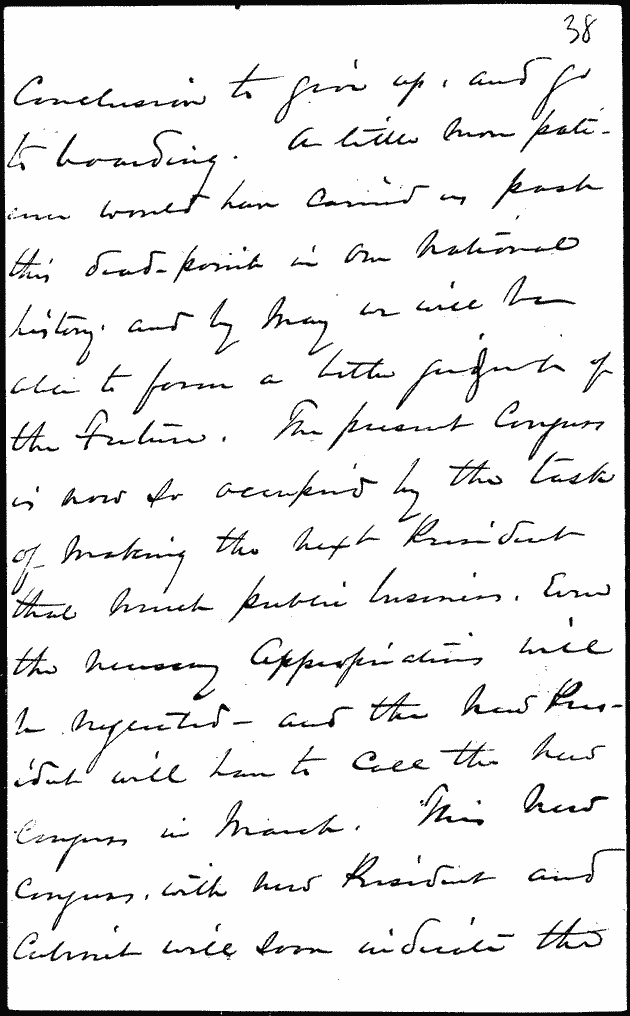 38
Conclusion to give up, and go
to boarding. A little more pati-
ence would have carried us past
this dead-point in our National
history, and by May we will be
able to form a better judgmt of
the Future. The present Congress
is now so occupied by the task
of making the next President
that much public business. Even
the necessary Appropriations will
be neglected - and the new Pres-
ident will have to call the new
Congress in March. This new
Congress, with new President and
Cabinet will soon indicate the